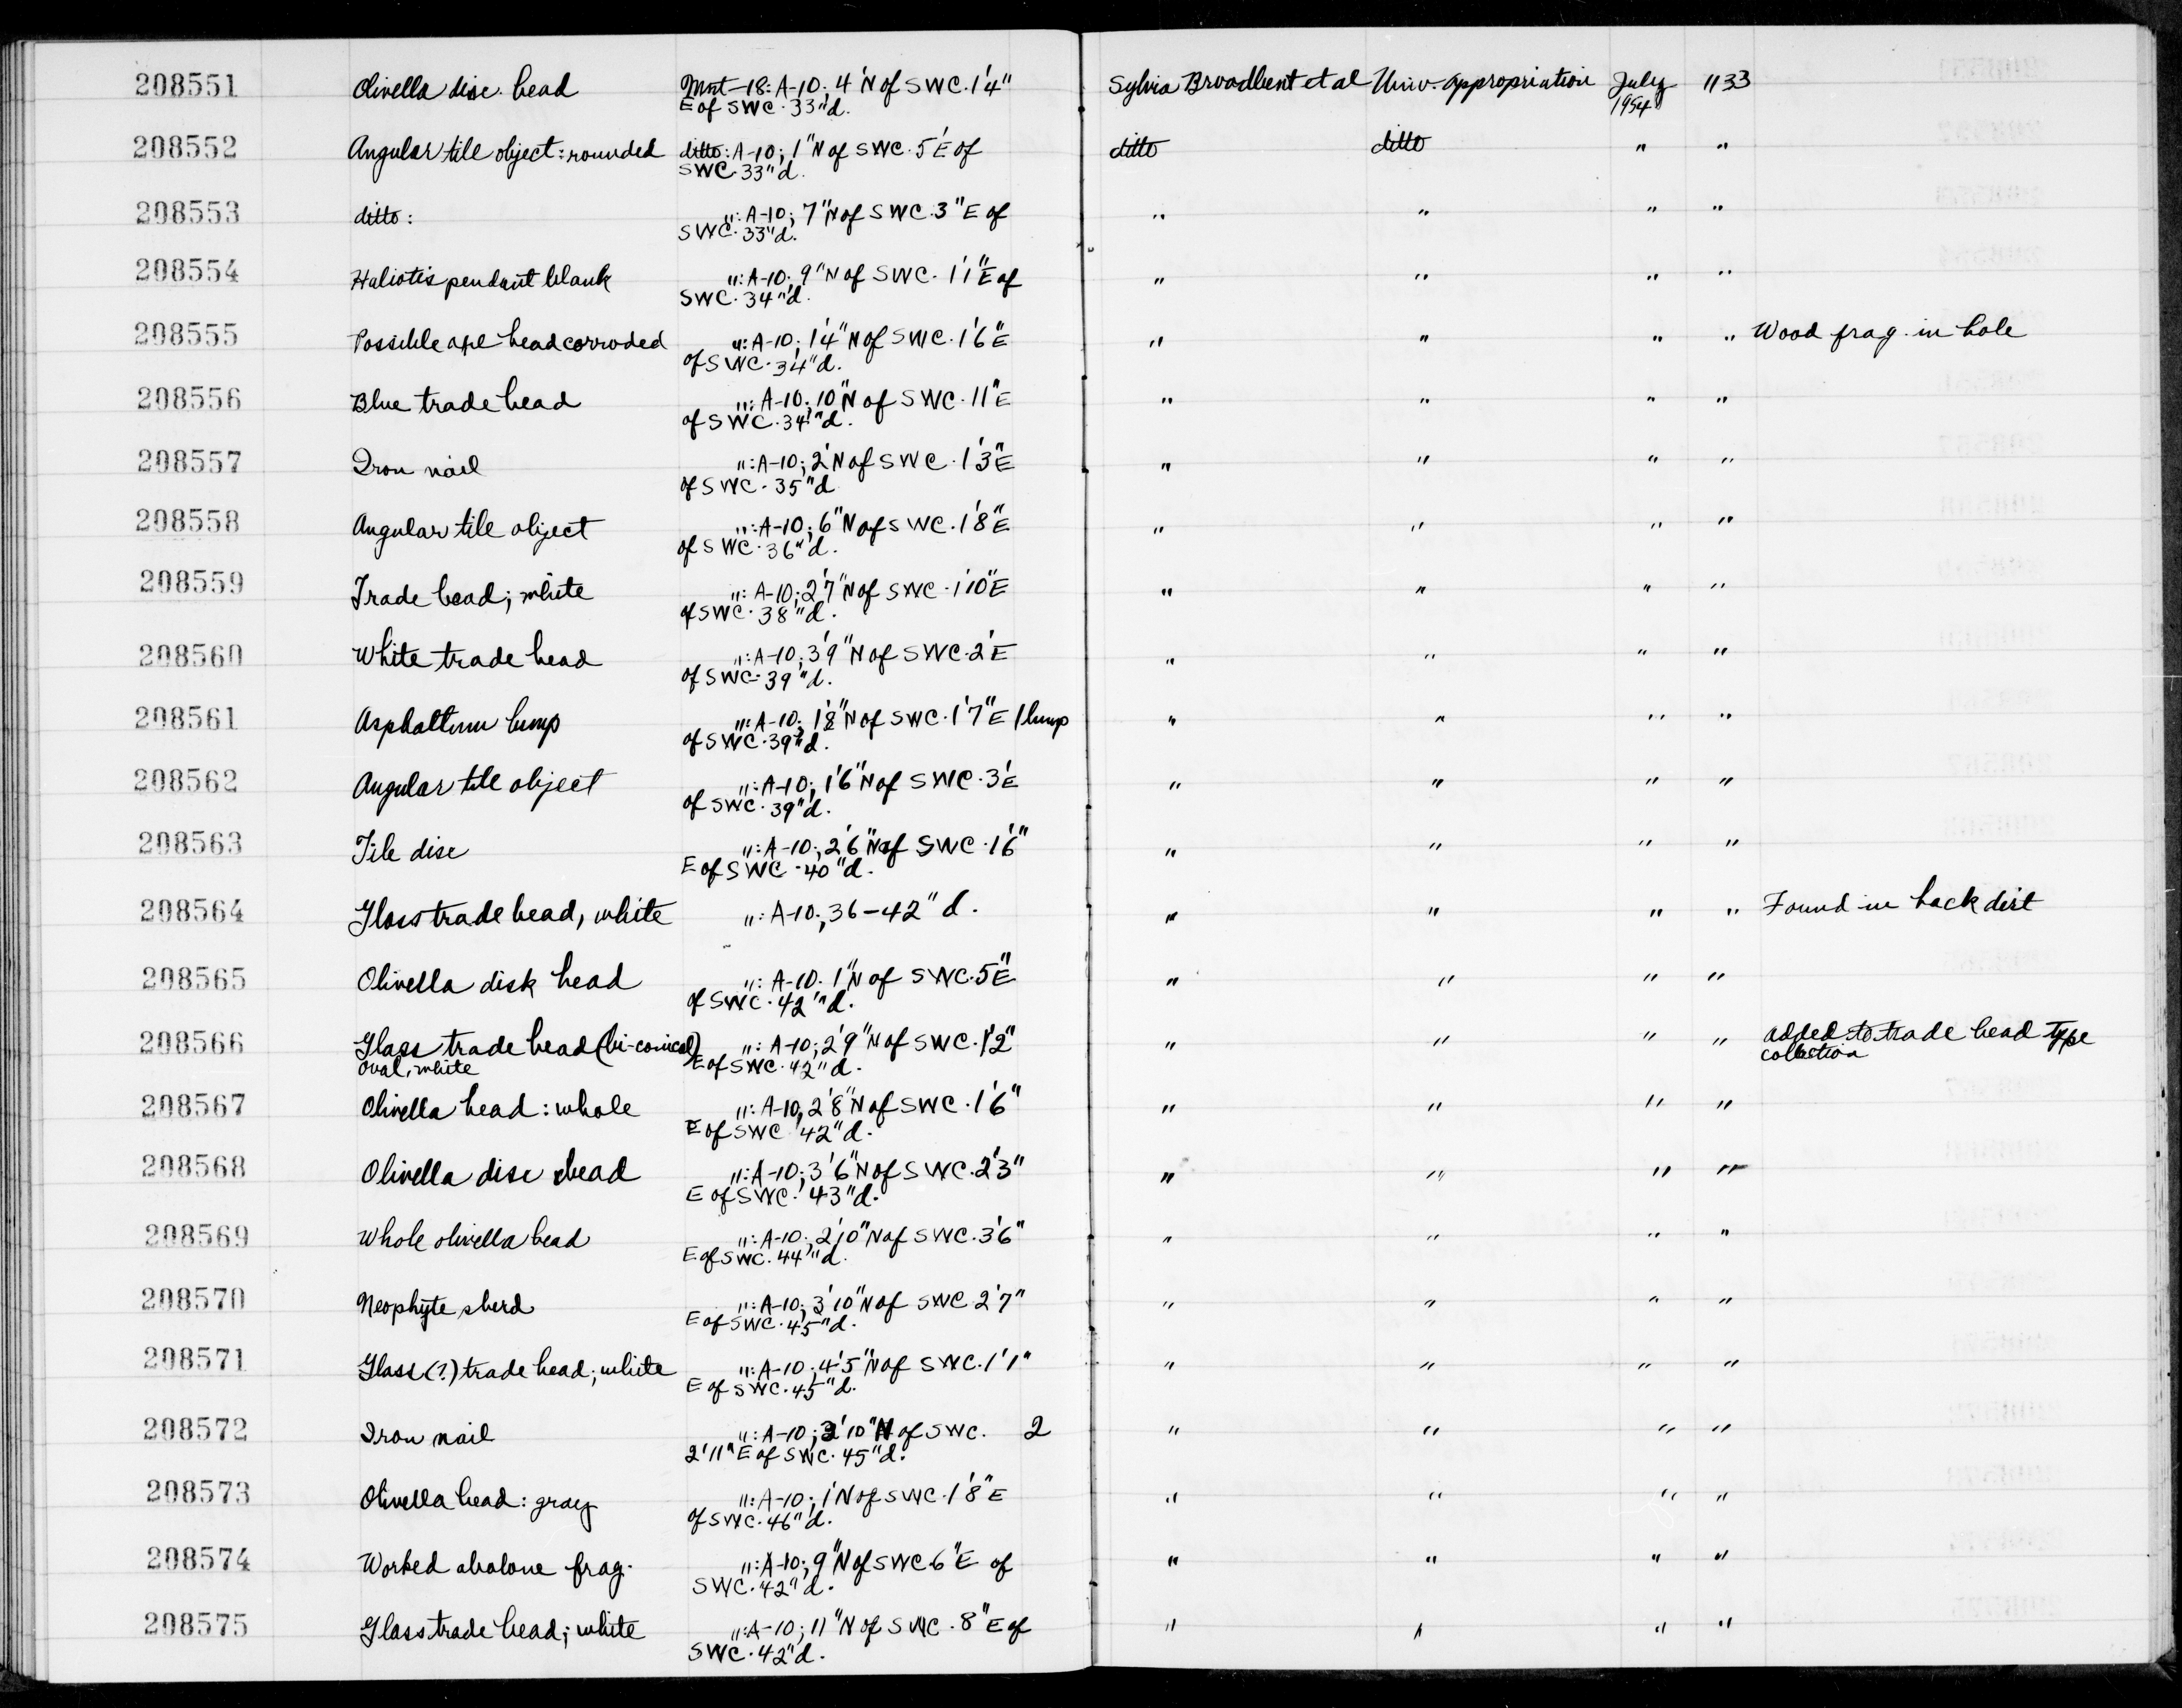 208551 Olivella disc bead Mnt-18: A-10; 4'N of SWC. 1'4" Sylvia Broadbent et al Univ. Appropriation July 1133
E of SWC. 33"d. 1954
208552 Angular tile object: rounded ditto: A-10; 1"N of SWC. 5'E of ditto ditto " "
SWC. 33"d.
208553 ditto: ": A-10; 7"N of SWC. 3"E of " " " "
SWC. 33"d.
208554 Haliotis pendant blank ": A-10; 9"N of SWC. 1'1"E of " " " "
SWC. 34"d.
208555 Possible axe head corroded ": A-10; 1'4"N of SWC. 1'6"E " " " " Wood frag. in hole
of SWC. 34"d.
208556 Blue trade bead ": A-10; 10"N of SWC. 11"E " " " "
of SWC. 34"d.
208557 Iron nail ": A-10; 2'N of SWC. 1'3"E " " " "
of SWC. 35"d
208558 Angular tile object ": A-10; 6"N of SWC. 1'8"E " " " "
of SWC. 36"d.
208559 Trade bead; white ": A-10; 2'7"N of SWC. 1'10"E " " " "
of SWC. 38"d.
208560 White trade bead ": A-10; 3'9"N of SWC. 2'E " " " "
of SWC. 39"d.
208561 Asphaltum lump ": A-10; 1'8"N of SWC. 1'7"E 1 lump " " " "
of SWC. 39"d.
208562 Angular tile object ": A-10; 1'6"N of SWC. 3'E " " " "
of SWC. 39"d.
208563 Tile disc ": A-10; 2'6"N of SWC. 1'6" " " " "
E of SWC. 40"d.
208564 Glass trade bead, white ": A-10; 36-42"d. " " " " Found in back dirt
208565 Olivella disk bead ": A-10. 1"N of SWC. 5"E " " " "
of SWC. 42"d.
208566 Glass trade bead (bi-conical) ": A-10; 2'9"N of SWC. 1'2" " " " " added to trade bead type
oval, white E of SWC. 42"d. collection
208567 Olivella bead: whole ": A-10, 2'8"N of SWC. 1'6" " " " "
E of SWC 42"d.
208568 Olivella disc bead ": A-10; 3'6"N of SWC. 2'3" " " " "
E of SWC. 43"d.
208569 Whole olivella bead ": A-10; 2'10"N of SWC. 3'6" " " " "
E of SWC. 44"d.
208570 Neophyte sherd ": A-10; 3'10"N of SWC 2'7" " " " "
E of SWC. 45"d.
208571 Glass (?) trade bead; white ": A-10; 4'5"N of SWC. 1'1" " " " "
E of SWC. 45"d.
208572 Iron nail ": A-10; 3'10"N of SWC. 2 " " " "
2'11"E of SWC. 45"d.
208573 Olivella bead: gray ": A-10; 1'N of SWC. 1'8"E " " " "
of SWC. 46"d.
208574 Worked abalone frag. ": A-10; 9"N of SWC 6"E of " " " "
SWC. 42"d.
208575 Glass trade bead; white ": A-10; 11"N of SWC. 8"E of " " " "
SWC. 42"d.